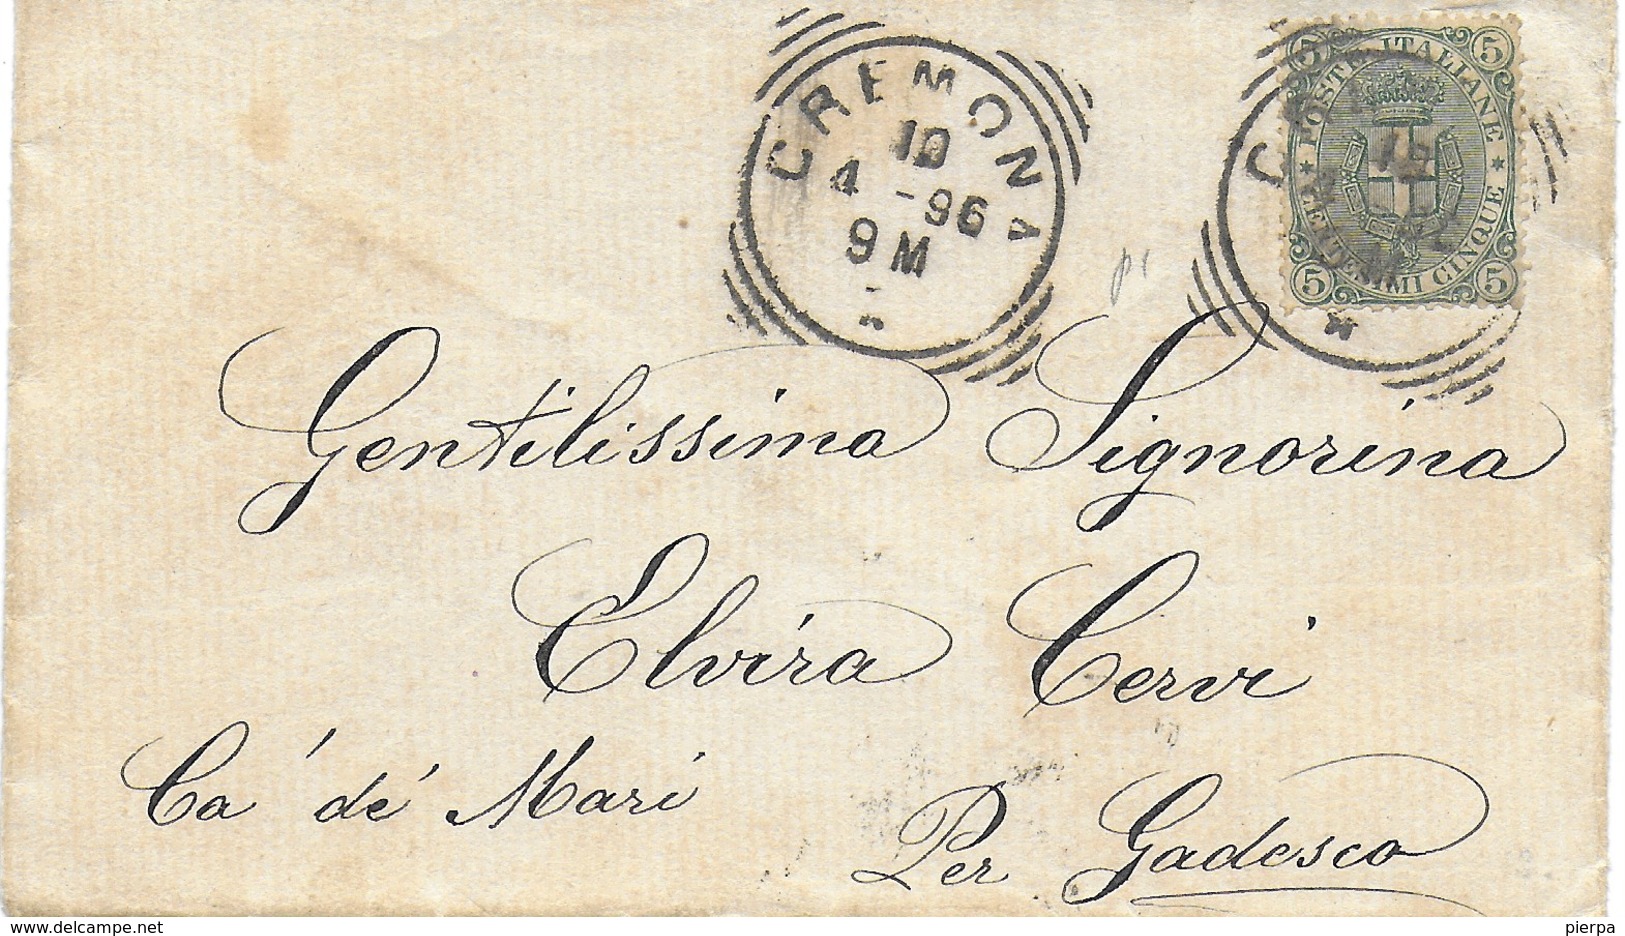 CREMONA
10
4 -96
9 M
POSTE ITALIANE
CENTESIMI CINQUE
5 5
5 5
Gentilissima Signorina
Elvira Cervi
Ca' dé Mari
Per Gadesco
delcampe.net
pierpa